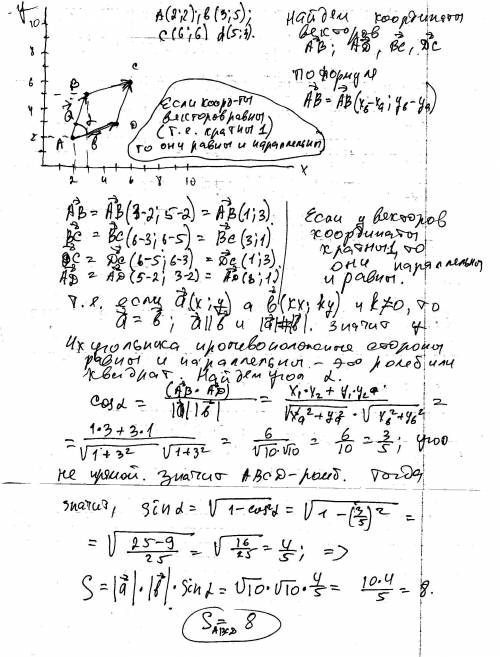 y
10
8
6
4
2
A(2;2); B(3;5);
C(6;6) d(5;3).
Найдем координаты
векторов
AB; AD, BC, DC
по формуле
AB = AB(xв-xa; yв-ya)
B
C
a
α
A
b
D
2 4 6 8 10
x
Если коор-ты
векторов равны
(т.е. кратны 1)
то они равны и параллельны
AB = AB(3-2; 5-2) = AB(1; 3)
BC = BC(6-3; 6-5) = BC(3; 1)
DC = DC(6-5; 6-3) = DC(1; 3)
AD = AD(5-2; 3-2) = AD(3; 1)
Если у векторов
координаты
кратны 1, то
они параллельны
и равны.
т.е. если a(x; y) а b(kx; ky) и k≠0, то
a = b; a || b и |a|=|b|. Значит у
4х угольника противоположные стороны
равны и параллельны - это ромб или
квадрат. Найдем угол α.
cosα = (AB · AD) / |a| |b| = x1·x2 + y1·y2 / √xa²+ya² · √xв²+yв² =
= 1·3+3·1 / √1+3² √1+3² = 6 / √10·√10 = 6/10 = 3/5; угол
не прямой. Значит ABCD-ромб. Тогда
значит, sinα = √1-cos²α = √1-(3/5)² =
= √25-9/25 = √16/25 = 4/5; =>
S = |a|·|b|·sinα = √10·√10·4/5 = 10·4/5 = 8.
S ABCD = 8